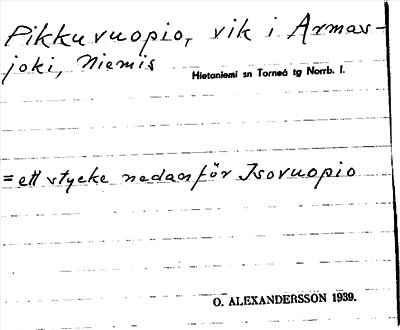 Pikkuvuopio, vik i Armas-
joki, Niemis
Hietaniemi sn Torneå tg Norrb. l.
= ett stycke nedanför Isovuopio
O. ALEXANDERSSON 1939.